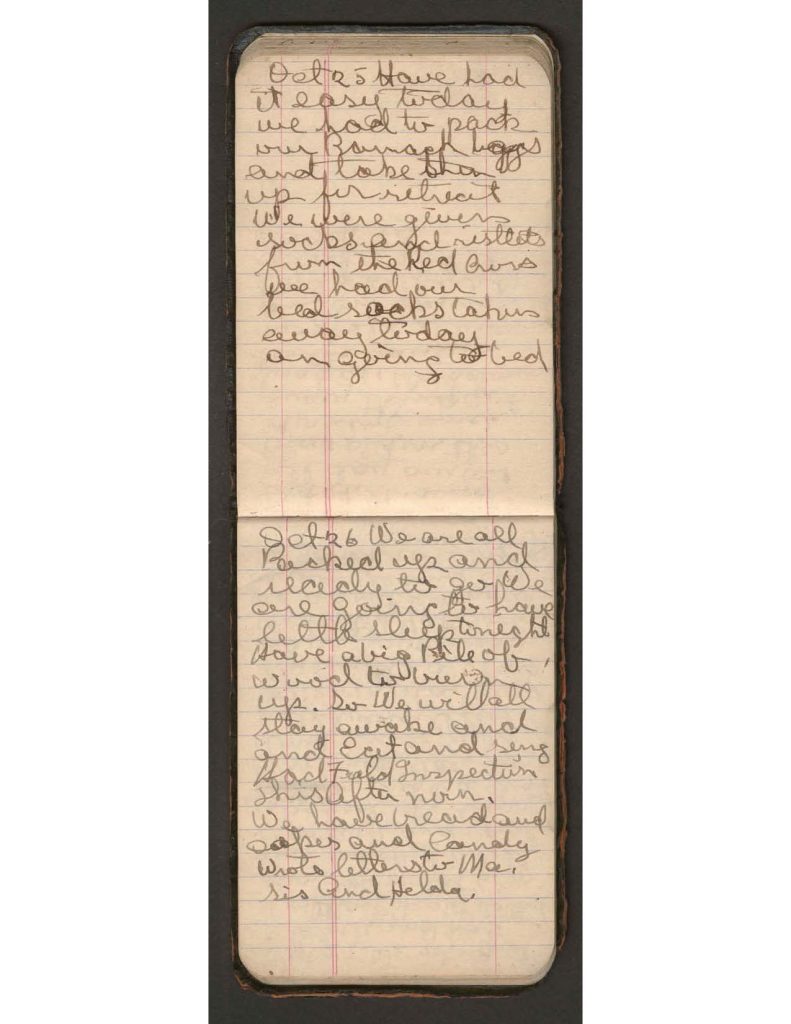 Oct 25 Have had
it easy today
we had to pack
our Barrack baggs
and take them
up for retreat
We were given
socks and ristlets
from the Red Cross
we had our
bed sacks taken
away today
am going to bed
Oct 26 We are all
Packed up and
ready to go We
are going to have
little sleep tonight
Have a big Pile of
wood to burn
up. So We will all
stay awake and
and Eat and sing
Had Field Inspection
this After noon.
We have bread and
cakes and Candy
Wrote letters to Ma.
sis And Helda.